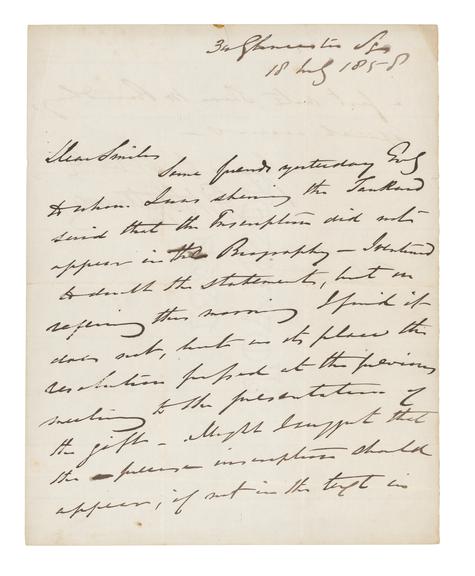 34 Gloucester Sqr
18 July 1858
Dear Smiles
Some friends yesterday Evg
to whom I was shewing the Tankard
said that the Inscription did not
appear in the Biography – I ventured
to doubt the statements, but on
refering this morning I find it
does not, but in its place the
resolution passed at the previous
meeting to the presentation of
the gift – Might I suggest that
the precise inscription should
appear, if not in the text in